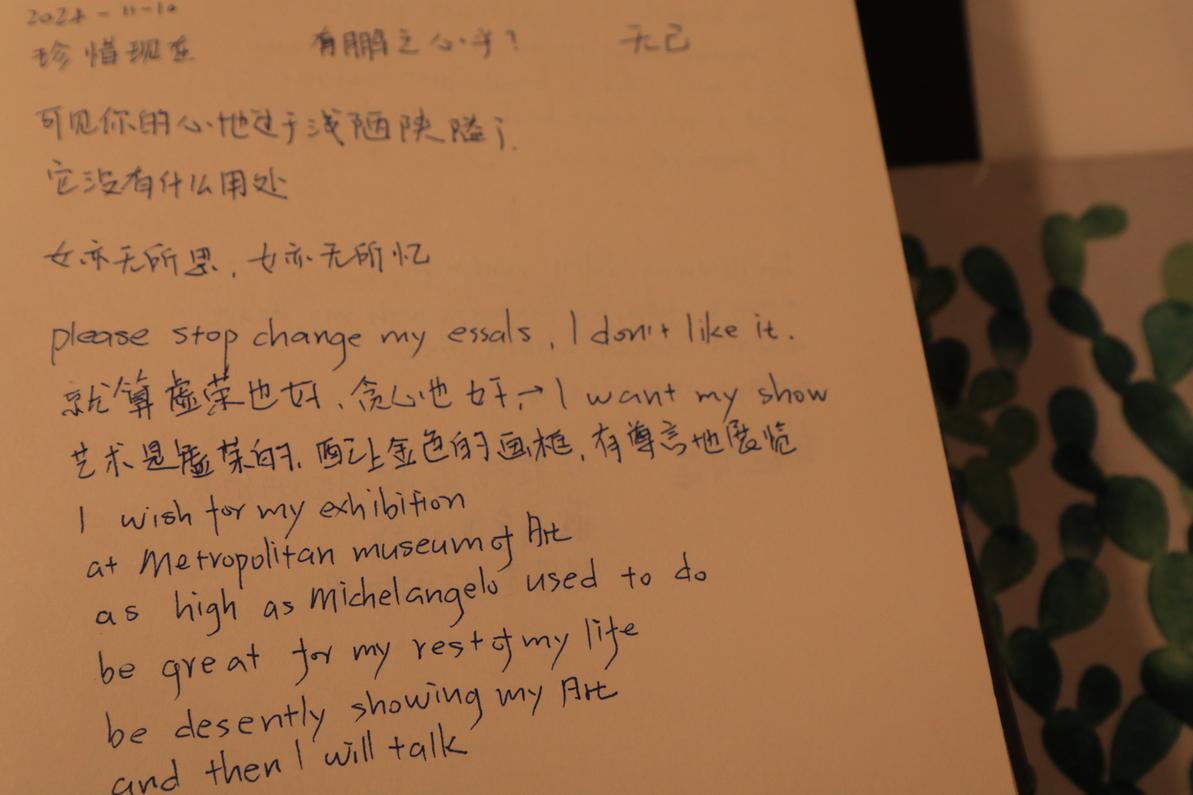 2024-11-10
珍惜现在 有鹏之心乎? 无己
可见你的心地过于浅陋狭隘了.
它没有什么用处
女亦无所思,女亦无所忆
please stop change my essals, I don't like it.
就算虚荣也好、贪心也好,→ I want my show
艺术是虚荣的、配上金色的画框,有尊言地展览
I wish for my exhibition
at Metropolitan museum of Art
as high as Michelangelo used to do
be great for my rest of my life
be desently showing my Art
and then I will talk